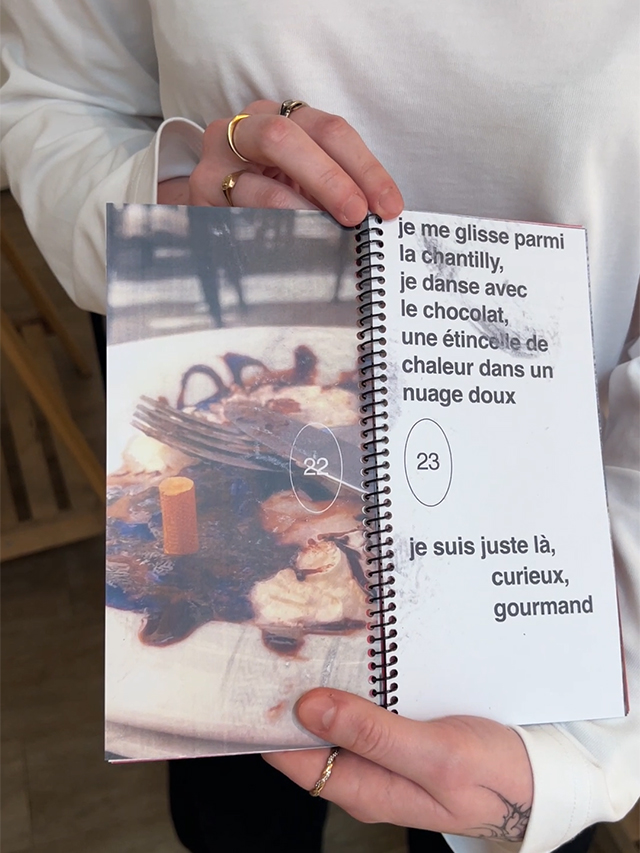 22
je me glisse parmi
la chantilly,
je danse avec
le chocolat,
une étincelle de
chaleur dans un
nuage doux
23
je suis juste là,
curieux,
gourmand